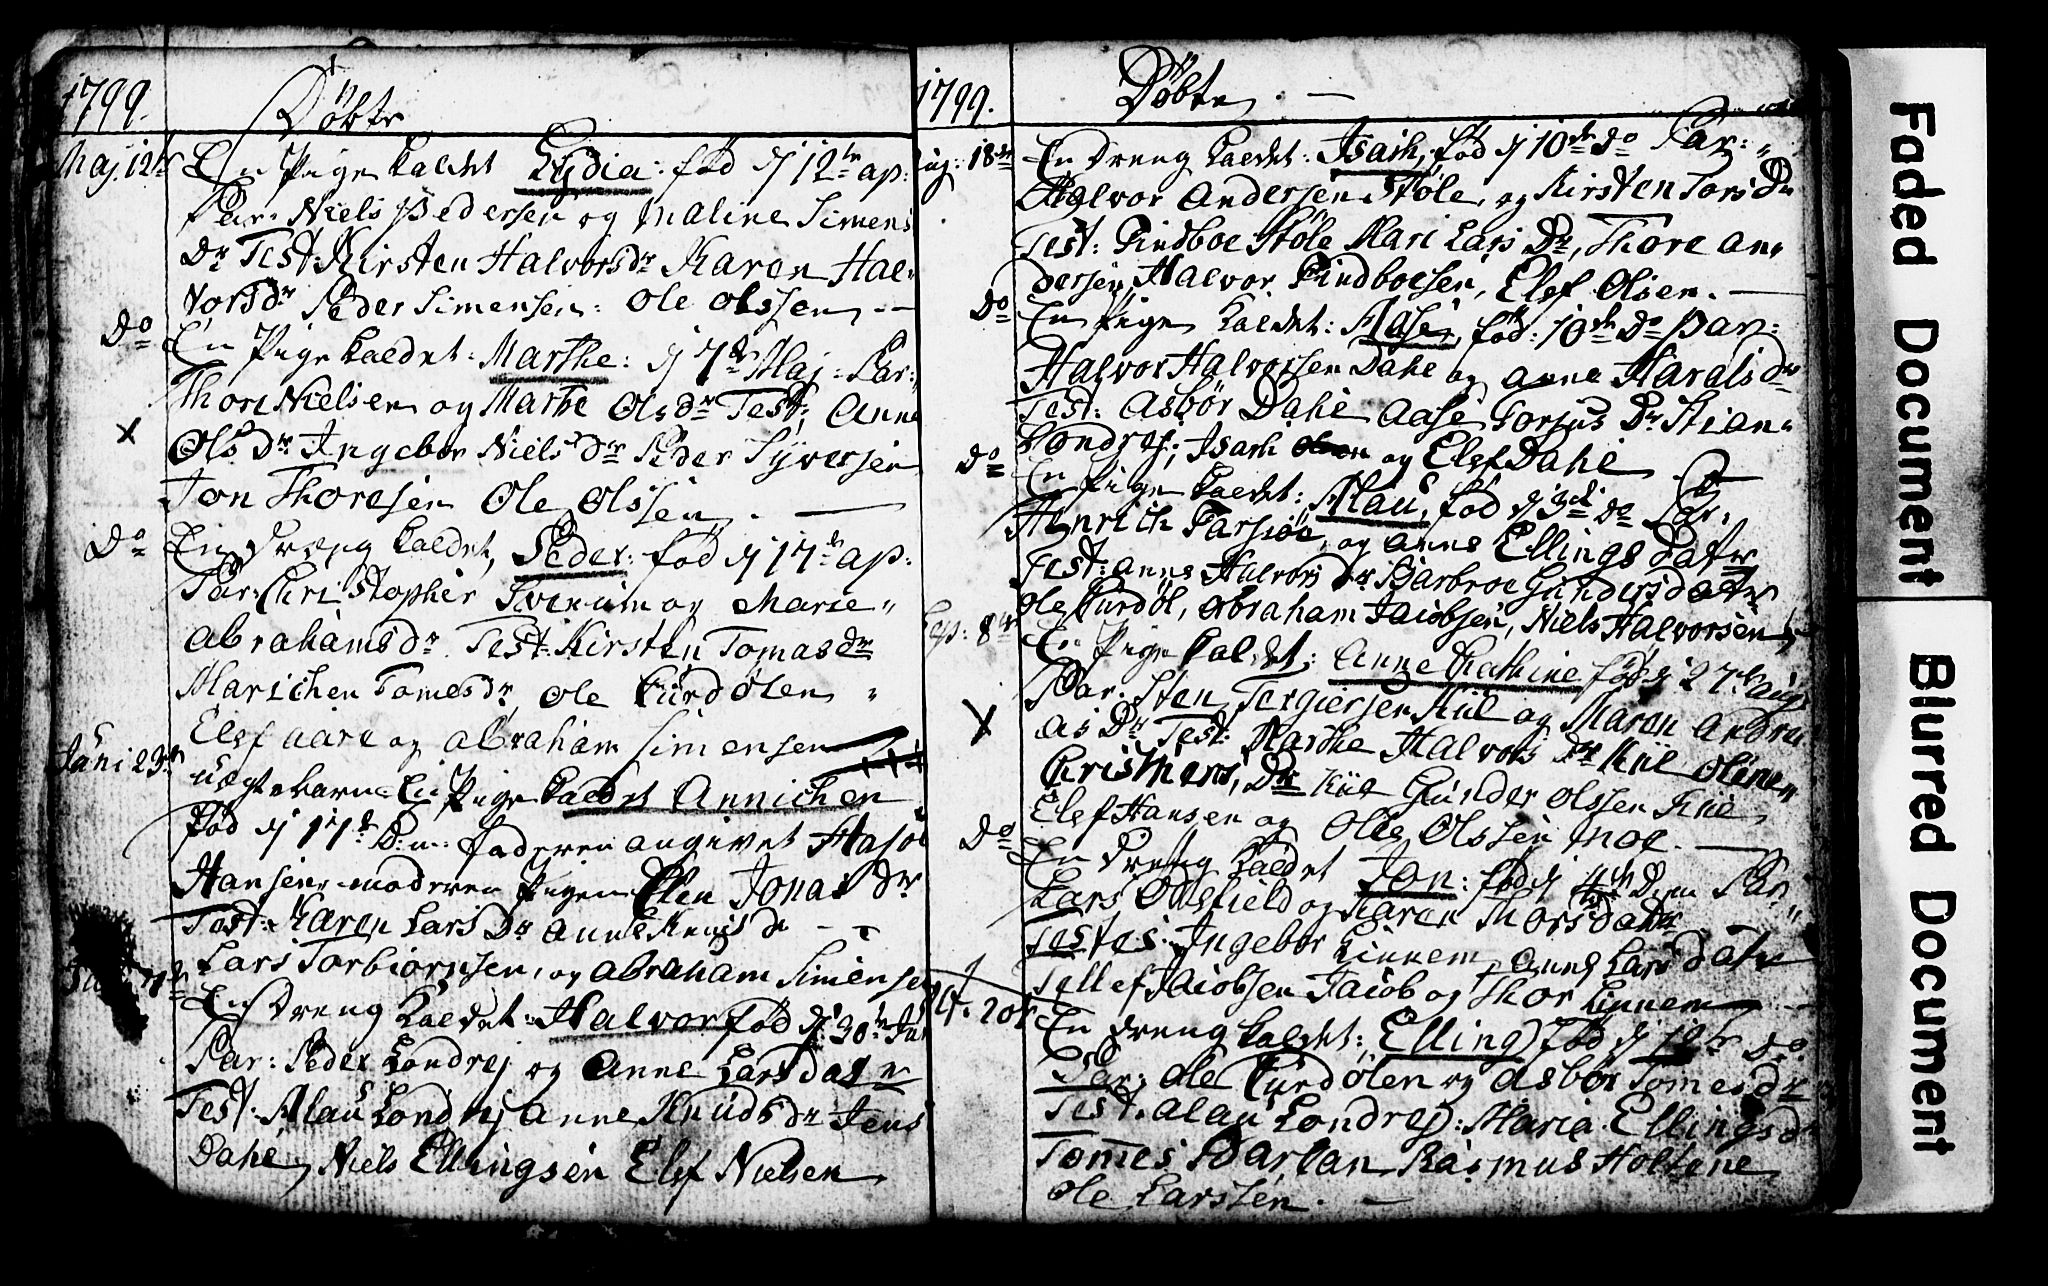 1799.
Döbte
Maj. 12te En Pige kaldet Lydia: fød d 12te ap:
Par: Niels Pedersen og Maline Simens
Dr Test: Kirsten Halvorsdr Karen Hal-
vorsdr Peder Simensen: Ole Olssen --
Do En Pige kaldet: Marthe: d 7de Maj = Par:
Thore Nielsen og Marte Olsdr Test: Anne
Ols Dr Ingebor Niels dr Peder Syversen
Jon Thoresen Ole Olssen. —
Do En Dreng kaldet, Peder: fød d 17de ap:
Par: Christopher og Marie
Abrahamsdr Test: Kirsten Tomasdr
Marichen Tomesdr, Ole Curdölen
Elef aare og Abraham Simensen
Juni 23de uægte barn En Pige kaldet Annichen
fød d 17de D: faderen angivet
Hansen, moderen Pigen Elen Jonas dr
Test: Karen Lars Dr Anne
Lars Torbiörnsen, og Abraham Simensen
7de En Dreng kaldet: Halvor fød d: 30te Jun
Par: Peder Londrej og Anne Larsdatr
Test: Alau Londrej Anne Knudsdr Jens
Dahe, Niels Ellingsen Elef Nielsen
1799.
Döbte. —
Aug: 18de En Dreng kaldet: Isach, fød d 10de do Par:
Halvor Andersen Støle, og Kirsten Tors Dr
Test: Findboe Støle Kari Lars Dr, Thore An-
dersen, Halvor Findboesen, Elef Olsen. —
Do En Pige kaldet: Aase, fød: 10de Do Par:
Halvor Halvorsen Dahe og Anne Haralsdr
Test: Asbör Dahe Aase Torjus Dr Stian
Londrej; Isach og Elef Dahe —
Do En Pige kaldet: Alau, fød d 3de do Par:
Henrich og Anne Ellings Datr
Test: Anne Halvors Dr Barbroe Gundersdatr
Ole Curdöl, Abraham Jacobsen, Niels Halvorsen
Sep: 8de En Pige kaldet: Anne Cathrine fød d 27de Aug
Par: Sten Tergiersen Kiil og Maren Andre
as Dr Test: Marthe Halvors Dr Kiil Oline
Christhens, Dr Kiil Gunder Olssen Kiil
Elef Hansen og Olle Olssen Moe. —
Do En Dreng kaldet Jon: fød d 4de Par
Lars Ollefield og Karen Thorsdatr
Testes: Ingebor Linnem, Anne Lars Datr
Tellef Jacobsen Jacob og Thor Linnem —
En Dreng kaldet: Elling fød d do
Par: Ole Curdölen og Asbör Tomesdr
Test: Alau Londrej: Maria Ellingsdr
Tomes Rasmus Holtene
Ole Larssen. —
Faded Document
Blurred Document